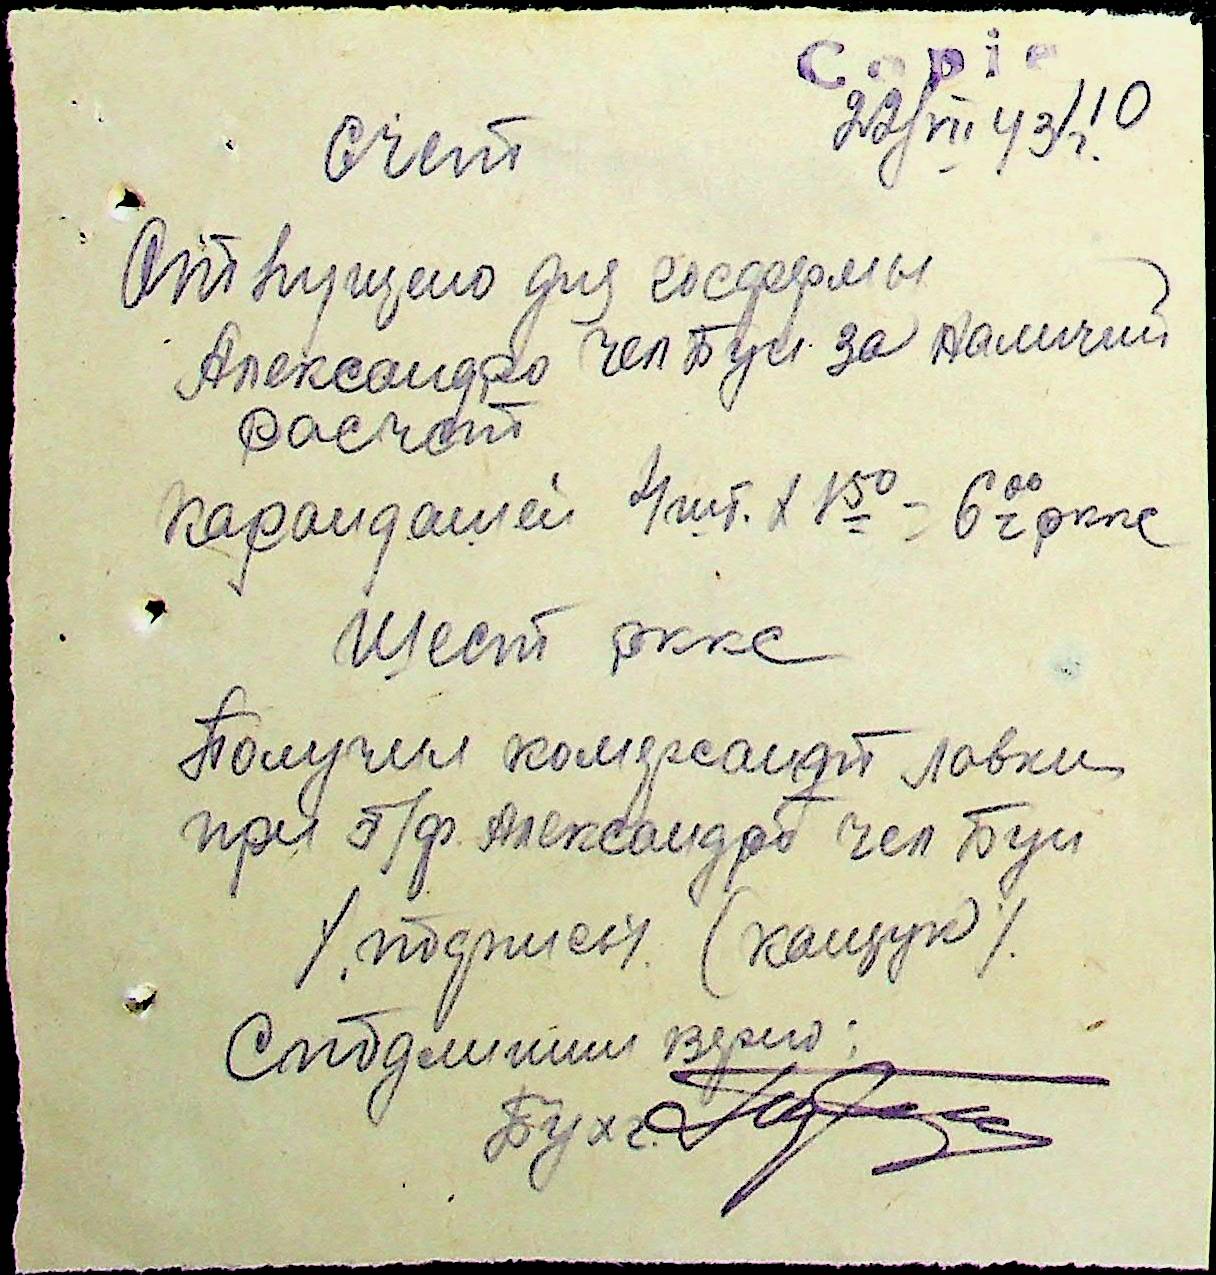 Copie
22/VII 43 г. 110
Счет
Отпущено для госфермы
Александро Чел Буи за наличий
расчот
карандашей 4 шт. х 1 50 = 6 00 г ркке
Шест ркке
Получил комерсант лавки
при г/ф. Александро чел Буи
/. подпись/. (кащук) /.
Сподлиним верно:
Бухг.